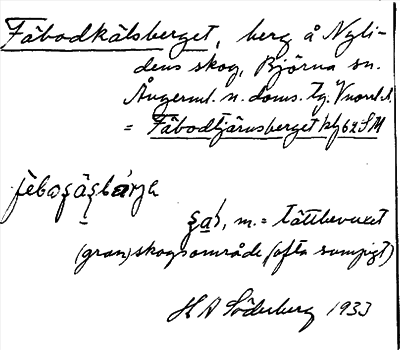 Fäbodkälsberget, berg å Nyli-
dens skog, Björna sn.
Ångerml. n. doms. tg. Vnorrl. l.
= Fäbodtjärnsberget kbl 62 SM
fèbaʂäʂbárjə
ʂaʹ, m. = tättbevuxet
(gran)skogsområde (ofta sumpigt)
H A Söderberg 1933